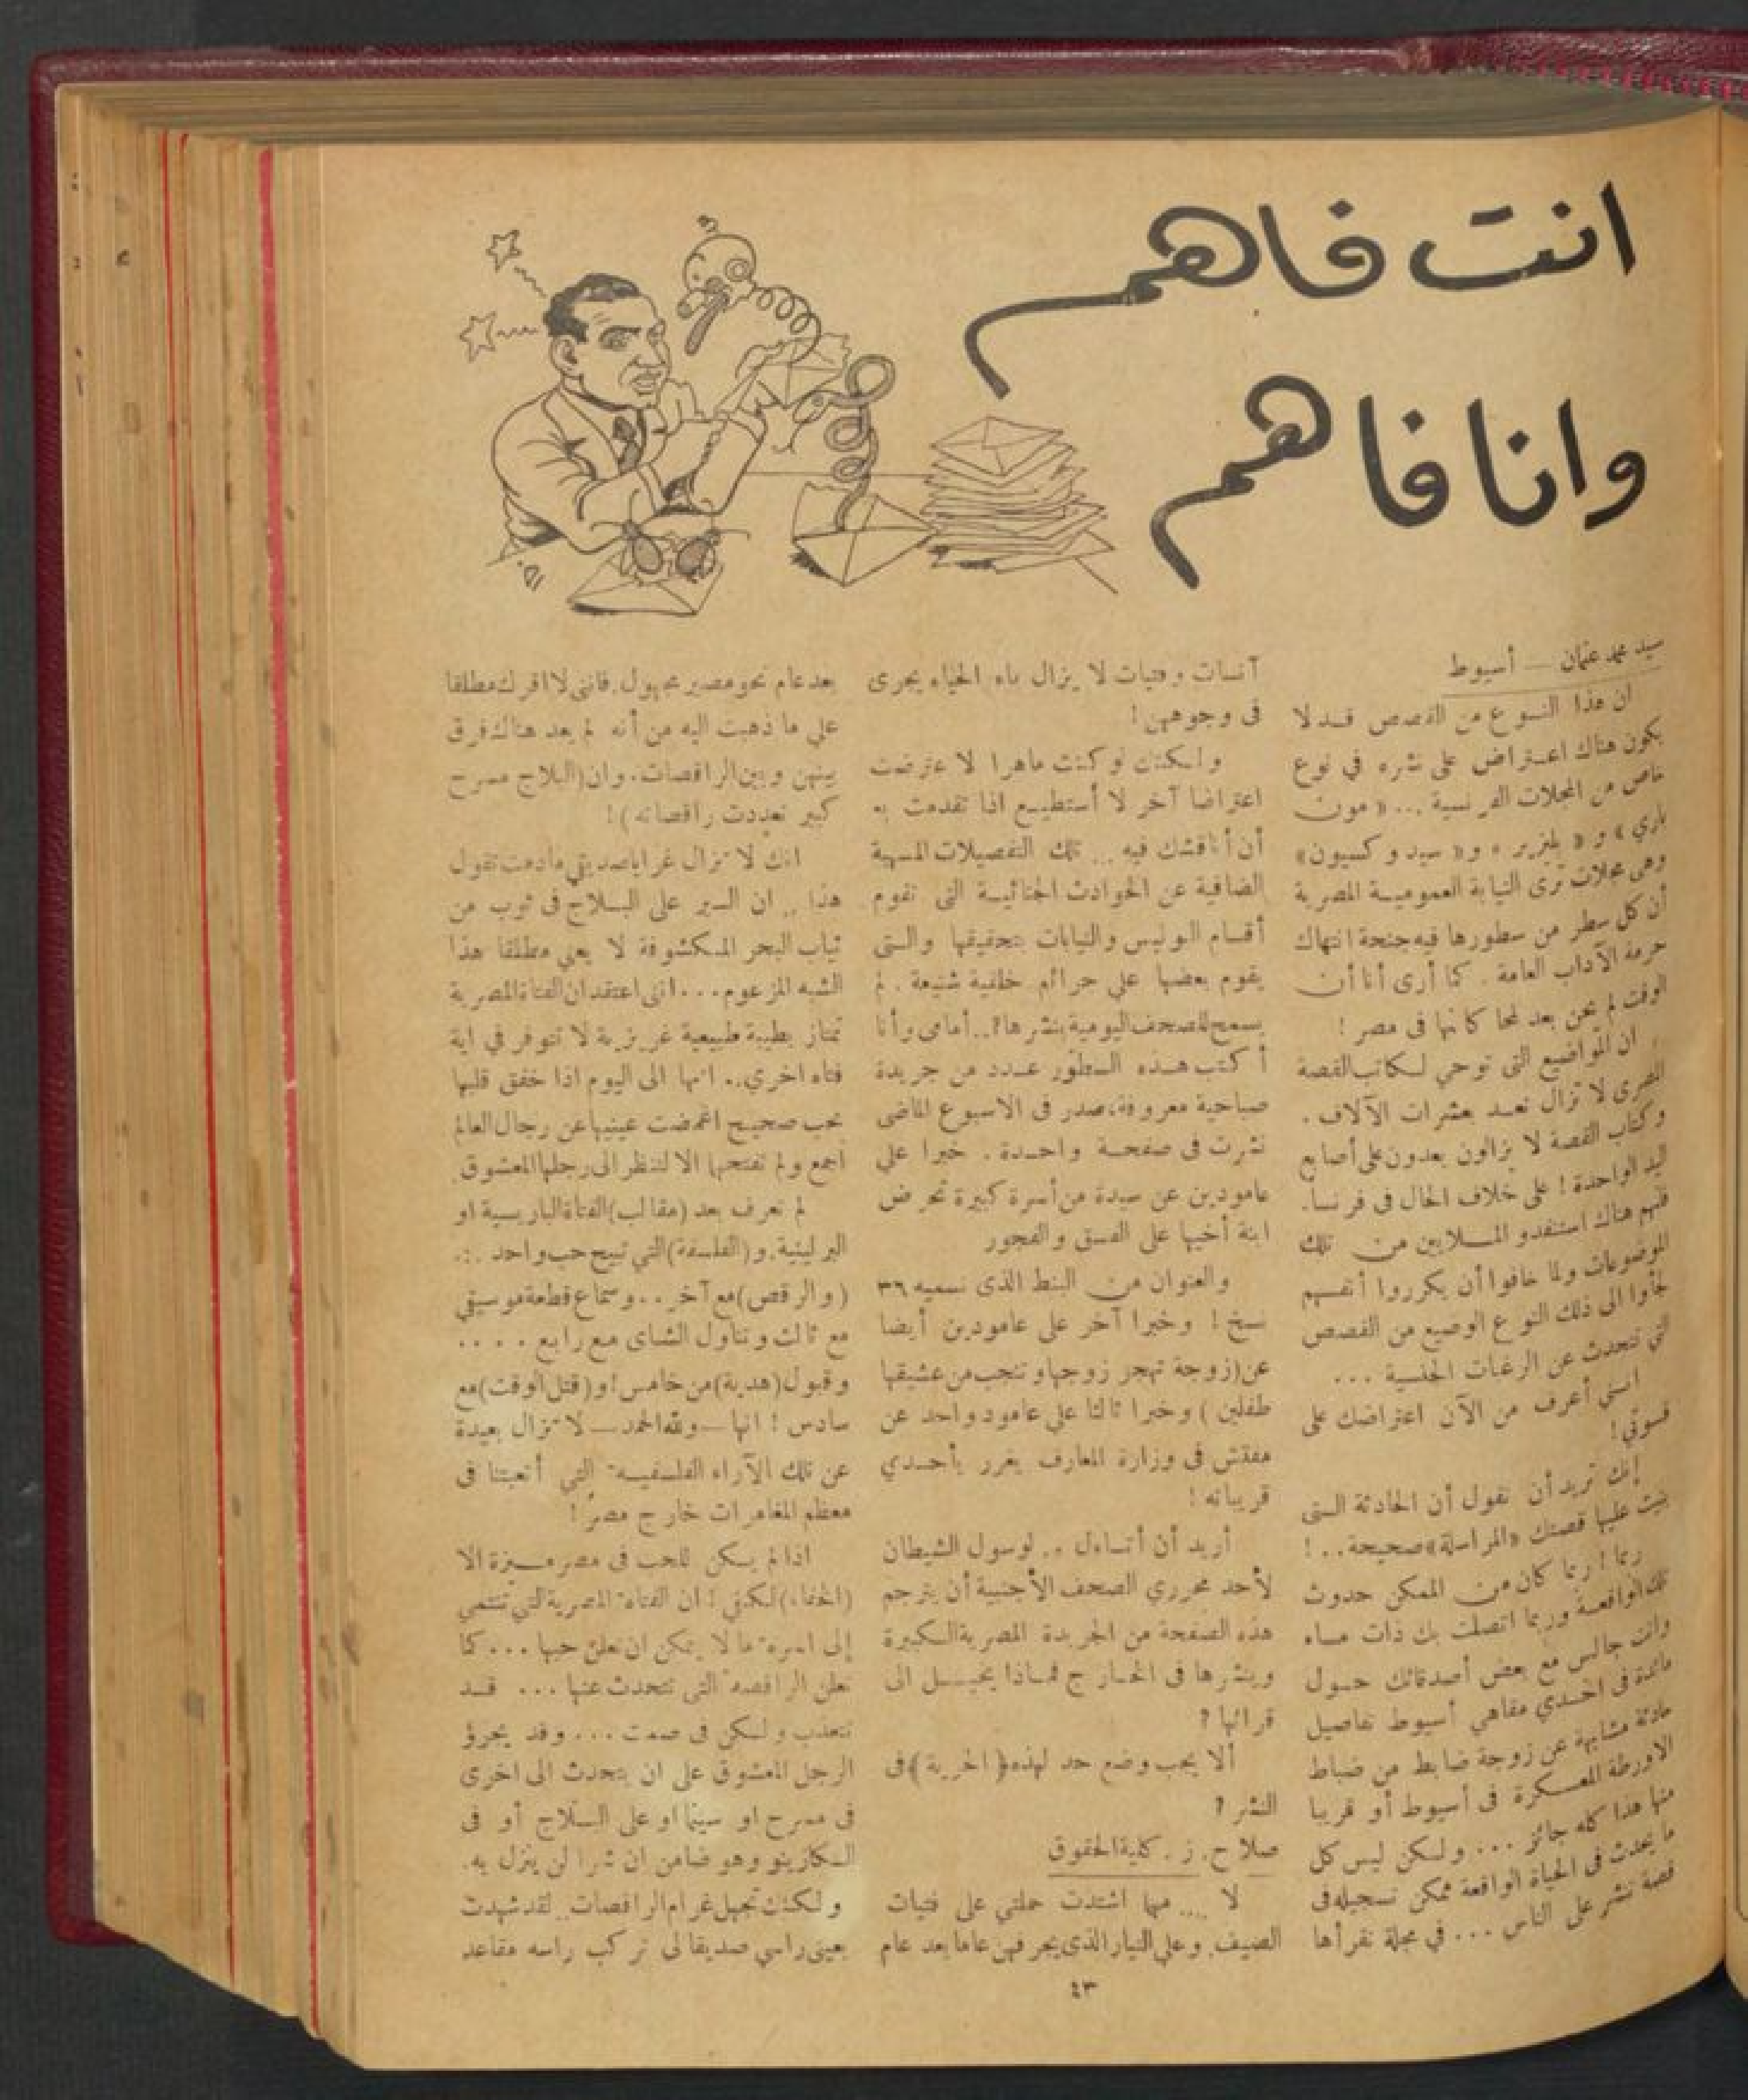 انت فاهم
وانا فاهم
سيد محمد عثمان — أسيوط
ان هذا النوع من القصص قد لا
يكون هناك اعتراض على نشره في نوع
خاص من المجلات الفرنسية ... « مون
باري » و « بلزير » و« سيد وكسيون»
وهى مجلات ترى النيابة العمومية المصرية
أن كل سطر من سطورها فيه جنحة انتهاك
حرمة الآداب العامة . كما أرى أنا أن
الوقت لم يحن بعد لمحاكاتها فى مصر !
ان المواضيع التى توحي لكاتب القصة
المصرى لا تزال تعد بعشرات الآلاف .
وكتاب القصة لا يزالون يعدون على أصابع
اليد الواحدة ! على خلاف الحال فى فرنسا.
فلهم هناك استنفدو الملايين من تلك
الموضوعات ولما خافوا أن يكرروا أنفسهم
لجأوا الى ذلك النوع الوضيع من القصص
التي تتحدث عن الرغبات الجنسية ...
انني أعرف من الآن اعتراضك على
قسوتي !
إنك تريد أن تقول أن الحادثة التى
بنيت عليها قصتك «المراسلة» صحيحة..!
ربما ! ربما كان من الممكن حدوث
تلك الواقعة وربما اتصلت بك ذات مساء
وانت جالس مع بعض أصدقائك حول
مائدة فى احدي مقاهي أسيوط تفاصيل
حادثة مشابهة عن زوجة ضابط من ضباط
الاورطة المعسكرة فى أسيوط أو قريبا
منها هذا كله جائز ... ولكن ليس كل
ما يحدث فى الحياة الواقعة ممكن تسجيله فى
قصة تنشر على الناس ... في مجلة تقرأها
آنسات وفتيات لا يزال ماء الحياء يجرى
فى وجوههن !
ولكنك لو كنت ماهرا لاعترضت
اعتراضا آخر لا أستطيع اذا تقدمت به
أن أناقشك فيه ... تلك التفصيلات المسهبة
الضافية عن الحوادث الجنائية التى تقوم
أقسام البوليس والنيابات بتحقيقها والتى
يقوم بعضها على جرائم خلقية شنيعة . لم
يسمح للصحف اليومية بنشرها؟.. أمامى وأنا
أكتب هذه السطور عدد من جريدة
صباحية معروفة،صدر فى الاسبوع الماضى
نشرت فى صفحة واحدة . خبرا على
عامودين عن سيدة من أسرة كبيرة تحرض
ابنة أخيها على الفسق والفجور
والعنوان من البنط الذى نسميه ٣٦
نسخ ! وخبرا آخر على عامودين أيضا
عن (زوجة تهجر زوجها وتنجب من عشيقها
طفلين ) وخبرا ثالثا على عامود واحد عن
مفتش فى وزارة المعارف يغرر بأحدي
قريباته !
أريد أن أتساءل .. لو سول الشيطان
لأحد محرري الصحف الأجنبية أن يترجم
هذه الصفحة من الجريدة المصرية الكبيرة
وينشرها فى الخارج فماذا يخيل الى
قرائها ?
ألا يجب وضع حد لهذه ( الحرية ) فى
النشر ?
صلاح . ز . كلية الحقوق
لا .... مهما اشتدت حملتي على فتيات
الصيف. وعلى التيار الذى يجرفهن عاما بعد عام
بعد عام نحو مصير مجهول. فاننى لا اقرك مطلقا
على ما ذهبت اليه من أنه لم يعد هناك فرق
بينهن وبين الراقصات. وان (البلاج مسرح
كبير تعددت راقصاته) !
انك لا تزال غرا ياصديقي مادمت تقول
هذا .. ان السير على البلاج فى ثوب من
ثياب البحر المكشوفة لا يعني مطلقا هذا
الشبه المزعوم... انى اعتقد ان الفتاة المصرية
تمتاز بطيبة طبيعية غريزية لا تتوفر في اية
فتاه اخري.. انها الى اليوم اذا خفق قلبها
بحب صحيح اغمضت عينيها عن رجال العالم
اجمع ولم تفتحها الا لتنظر الى رجلها المعشوق.
لم تعرف بعد (مقالب) الفتاة الباريسية او
البرلينية. و(الفلسفة) التي تبيح حب واحد ..
(والرقص) مع آخر .. وسماع قطعة موسيقي
مع ثالث وتناول الشاى مع رابع ....
وقبول (هدية) من خامس او (قتل الوقت) مع
سادس ! انها — ولله الحمد — لا تزال بعيدة
عن تلك الآراء الفلسفية التي أتعبتنا فى
معظم المغامرات خارج مصر !
اذا لم يكن للحب فى مصر ميزة الا
(الخفاء) لكفى ! ان الفتاة المصرية التي تنتمي
إلى اسرة ما لا يمكن ان تعلن حبها ... كما
تعلن الراقصة التي تتحدث عنها ... قد
تتعذب ولكن فى صمت ... وقد يجرؤ
الرجل المعشوق على ان يتحدث الى اخرى
فى مسرح او سينما او على البلاج أو فى
الكازينو وهو ضامن ان شرا لن ينزل به.
ولكنك تجهل غرام الراقصات. لقد شهدت
بعينى راسي صديقا لى تركب راسه مقاعد
٤٣